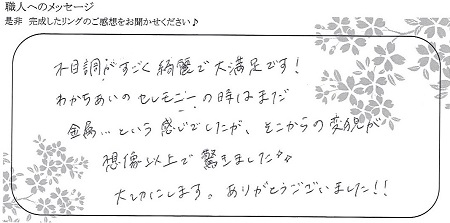 職人へのメッセージ
是非 完成したリングのご感想をお聞かせください♪
木目調がすごく綺麗で大満足です！
わかちあいのセレモニーの時はまだ
金属…という感じでしたが、そこからの変貌が
想像以上で驚きました✨
大切にします。ありがとうございました！！